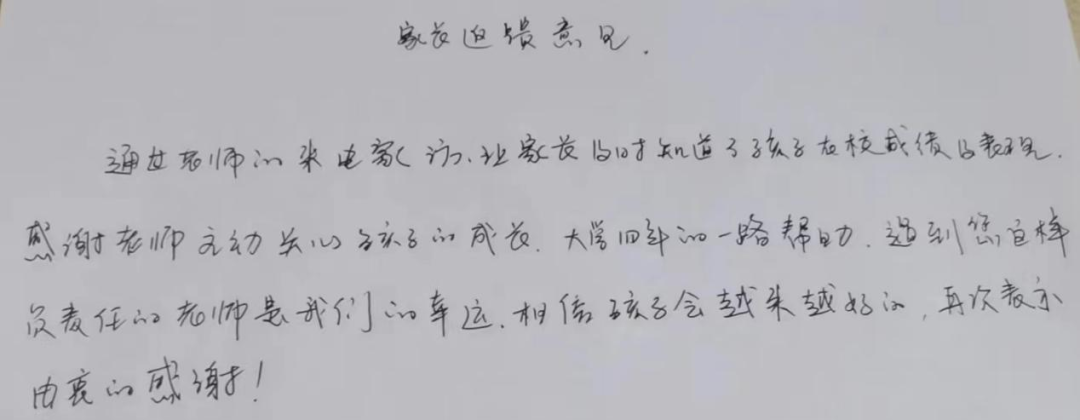 家长回馈意见.
通过老师的来电家访.让家长及时知道了孩子在校成绩与表现.
感谢老师主动关心孩子的成长.大学四年的一路帮助.遇到您这样
负责任的老师是我们的幸运.相信孩子会越来越好的,再次表示
由衷的感谢!